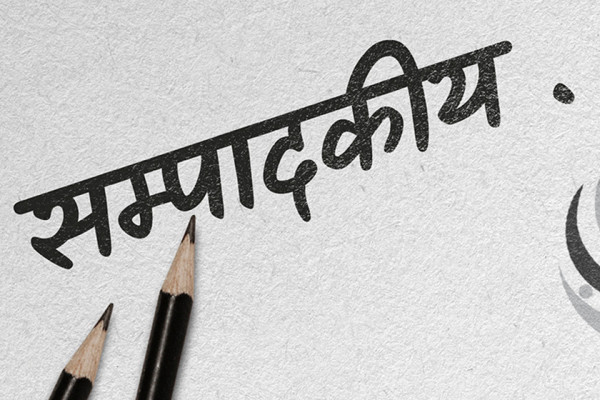 सम्पादकीय .